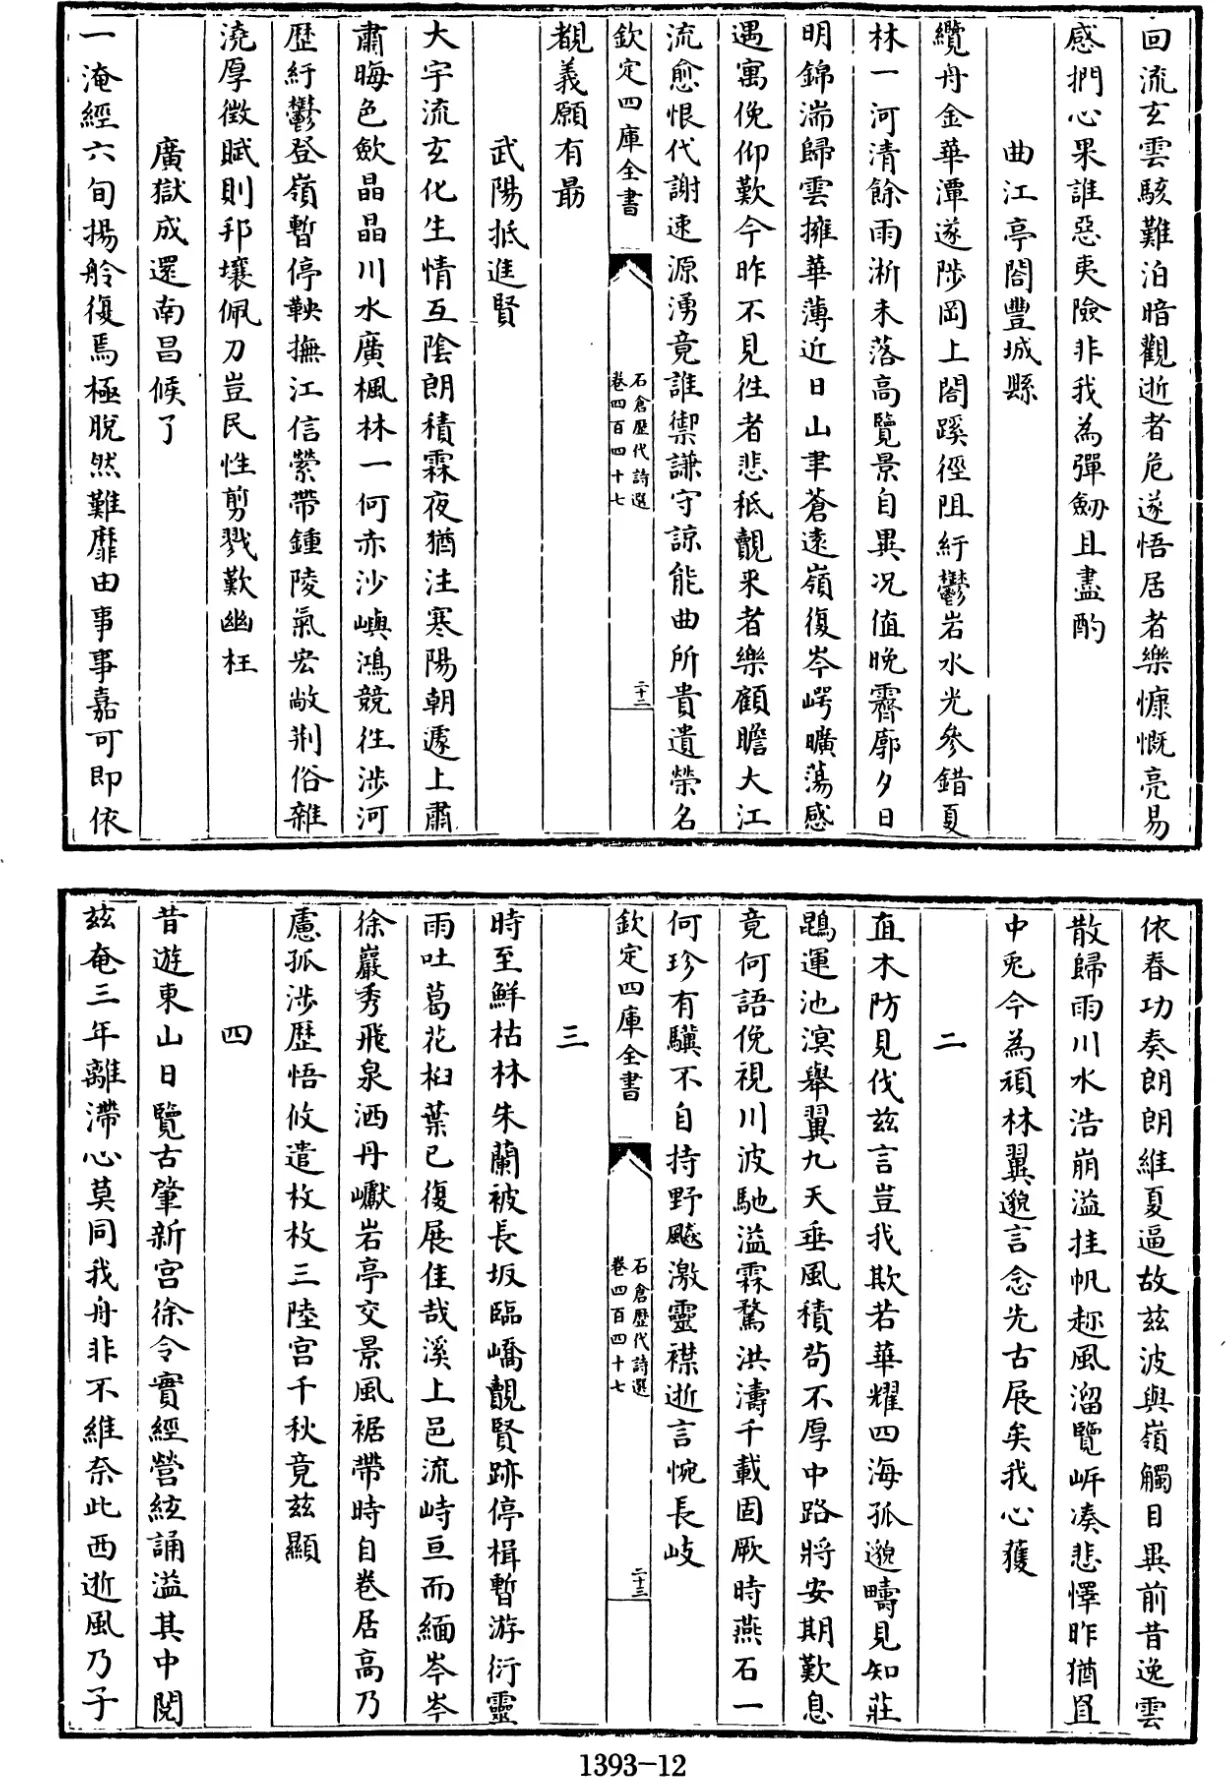 回流玄雲駭難泊暗觀逝者危遂悟居者樂慷慨亮易
感捫心果誰惡夷險非我為彈劔且盡酌
曲江亭閤豐城縣
纜舟金華潭遂陟岡上閤蹊徑阻紆鬱岩水光參錯夏
林一河清餘雨淅未落高覽景自異况值晚霽廓夕日
明錦湍歸雲擁華薄近日山聿蒼遠嶺復岑崿曠蕩感
遇寓俛仰歎今昨不見徃者悲秪覿来者樂顧瞻大江
流愈恨代謝速源湧竟誰禦謙守諒能曲所貴遺榮名
欽定四庫全書
石倉歷代詩選
卷四百四十七
二十二
覩義願有勗
武陽抵進賢
大宇流玄化生情互陰朗積霖夜猶注寒陽朝遽上肅
肅晦色斂晶晶川水廣楓林一何赤沙嶼鴻競徃涉河
歷紆鬱登嶺暫停鞅撫江信縈帶鍾陵氣宏敞荆俗雜
澆厚徴賦則邦壤佩刀豈民性剪戮歎幽枉
廣獄成還南昌候了
一淹經六旬揚舲復焉極脫然難靡由事事嘉可即依
依春功奏朗朗維夏逼故兹波與嶺觸目異前昔逸雲
散歸雨川水浩崩溢挂帆趂風溜覽㟁凑悲懌昨猶罝
中兎今為頑林翼邈言念先古展矣我心獲
二
直木防見伐兹言豈我欺若華耀四海孤邈疇見知莊
鵾運池溟舉翼九天垂風積茍不厚中路將安期歎息
竟何語俛視川波馳溢霖騖洪濤千載固厥時燕石一
何珍有驥不自持野飈激靈襟逝言惋長岐
欽定四庫全書
石倉歷代詩選
卷四百四十七
二十三
三
時至鮮枯林朱蘭被長坂臨嶠覿賢跡停楫暫游衍靈
雨吐葛花桕葉已復展佳哉溪上邑流峙亘而緬岑岑
徐巖秀飛泉洒丹巘岩亭交景風裾帶時自卷居高乃
慮孤涉歷悟攸遣枚枚三陸宫千秋竟兹顯
四
昔遊東山日覽古肇新宫徐令實經營絃誦溢其中閲
兹奄三年離滯心莫同我舟非不維奈此西逝風乃子
1393–12